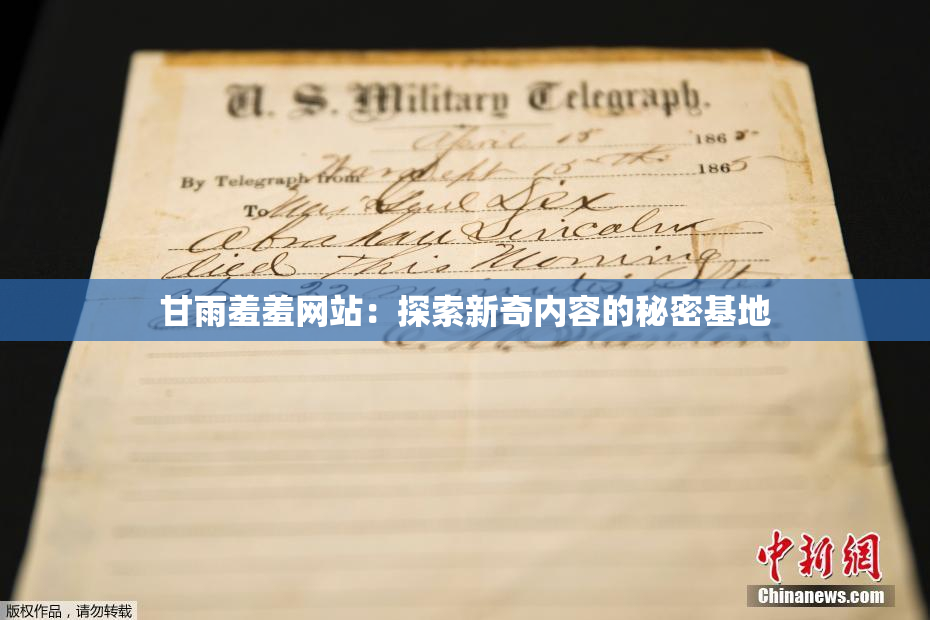 U. S. Military Telegraph.
April 15 1865
By Telegraph from War Dept 15th 1865
To Maj Genl Dix
Abraham Lincoln
died This Morning
at 22 minutes after
甘雨羞羞网站：探索新奇内容的秘密基地
E. M. Stanton
中新網
Chinanews.com
版权作品，请勿转载